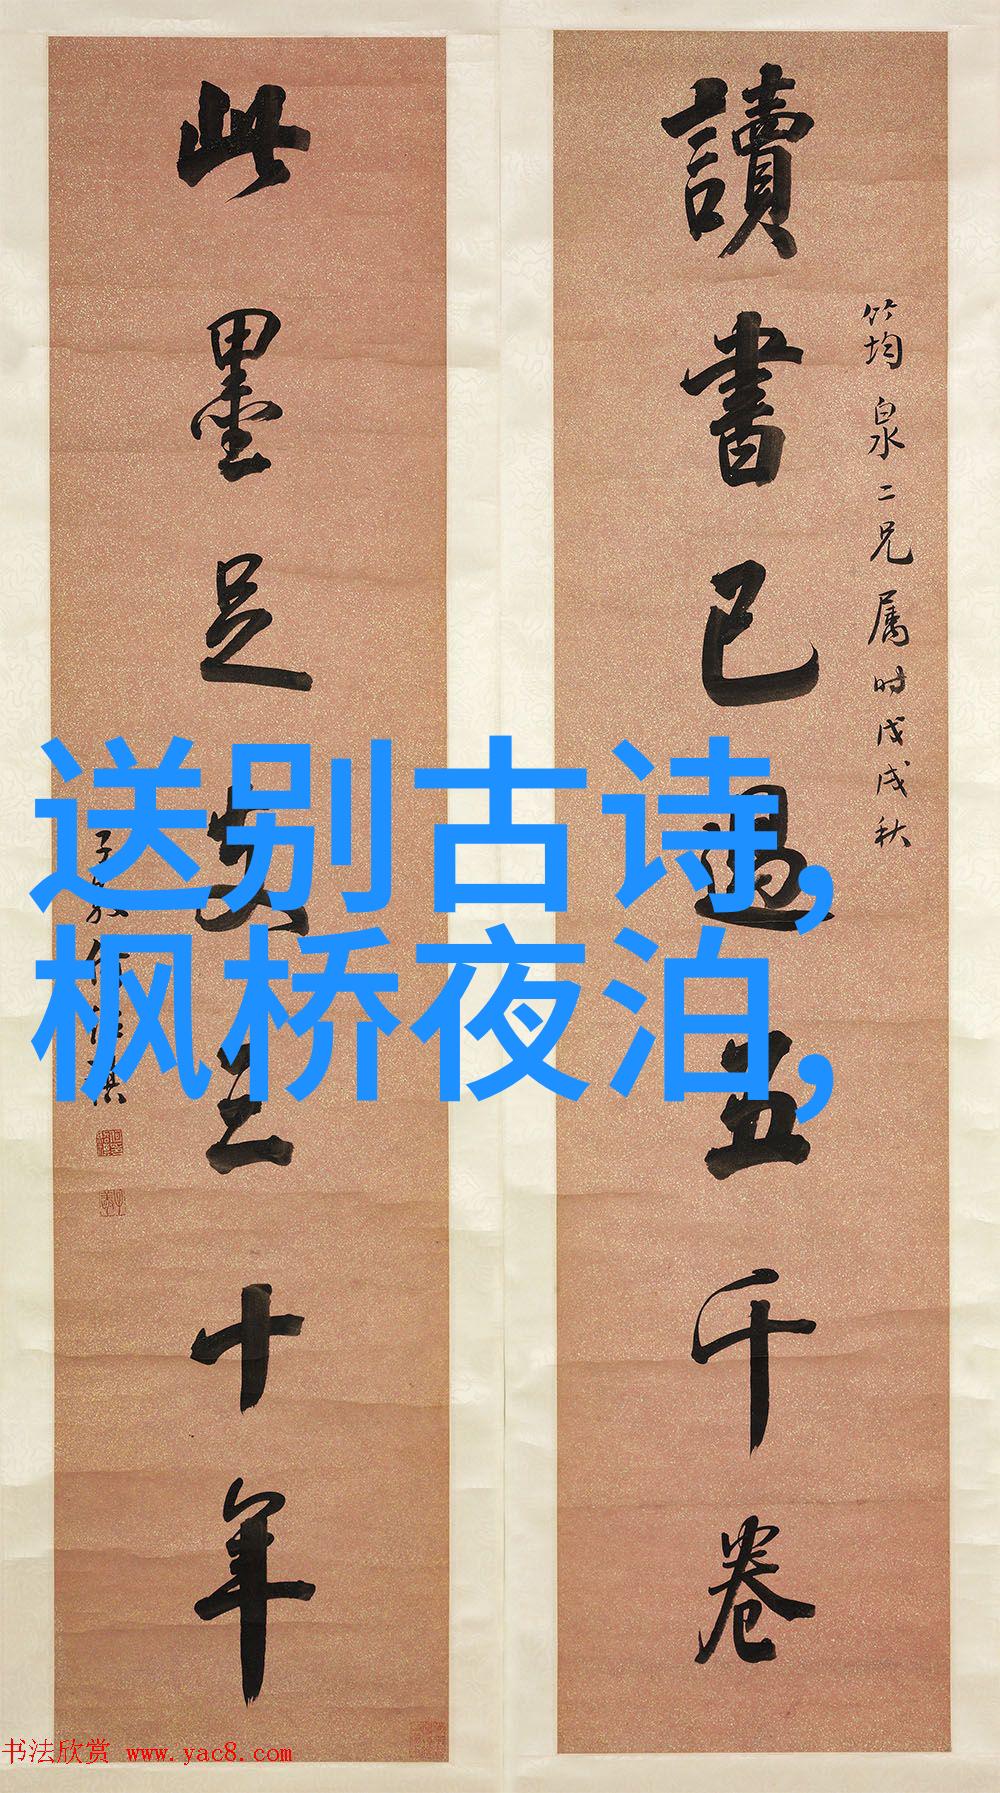 讀書已過五千卷
竹均泉二兄属时戊戌秋
此墨足支三十年
送别古诗,
枫桥夜泊,
书法欣赏 www.yac8.com